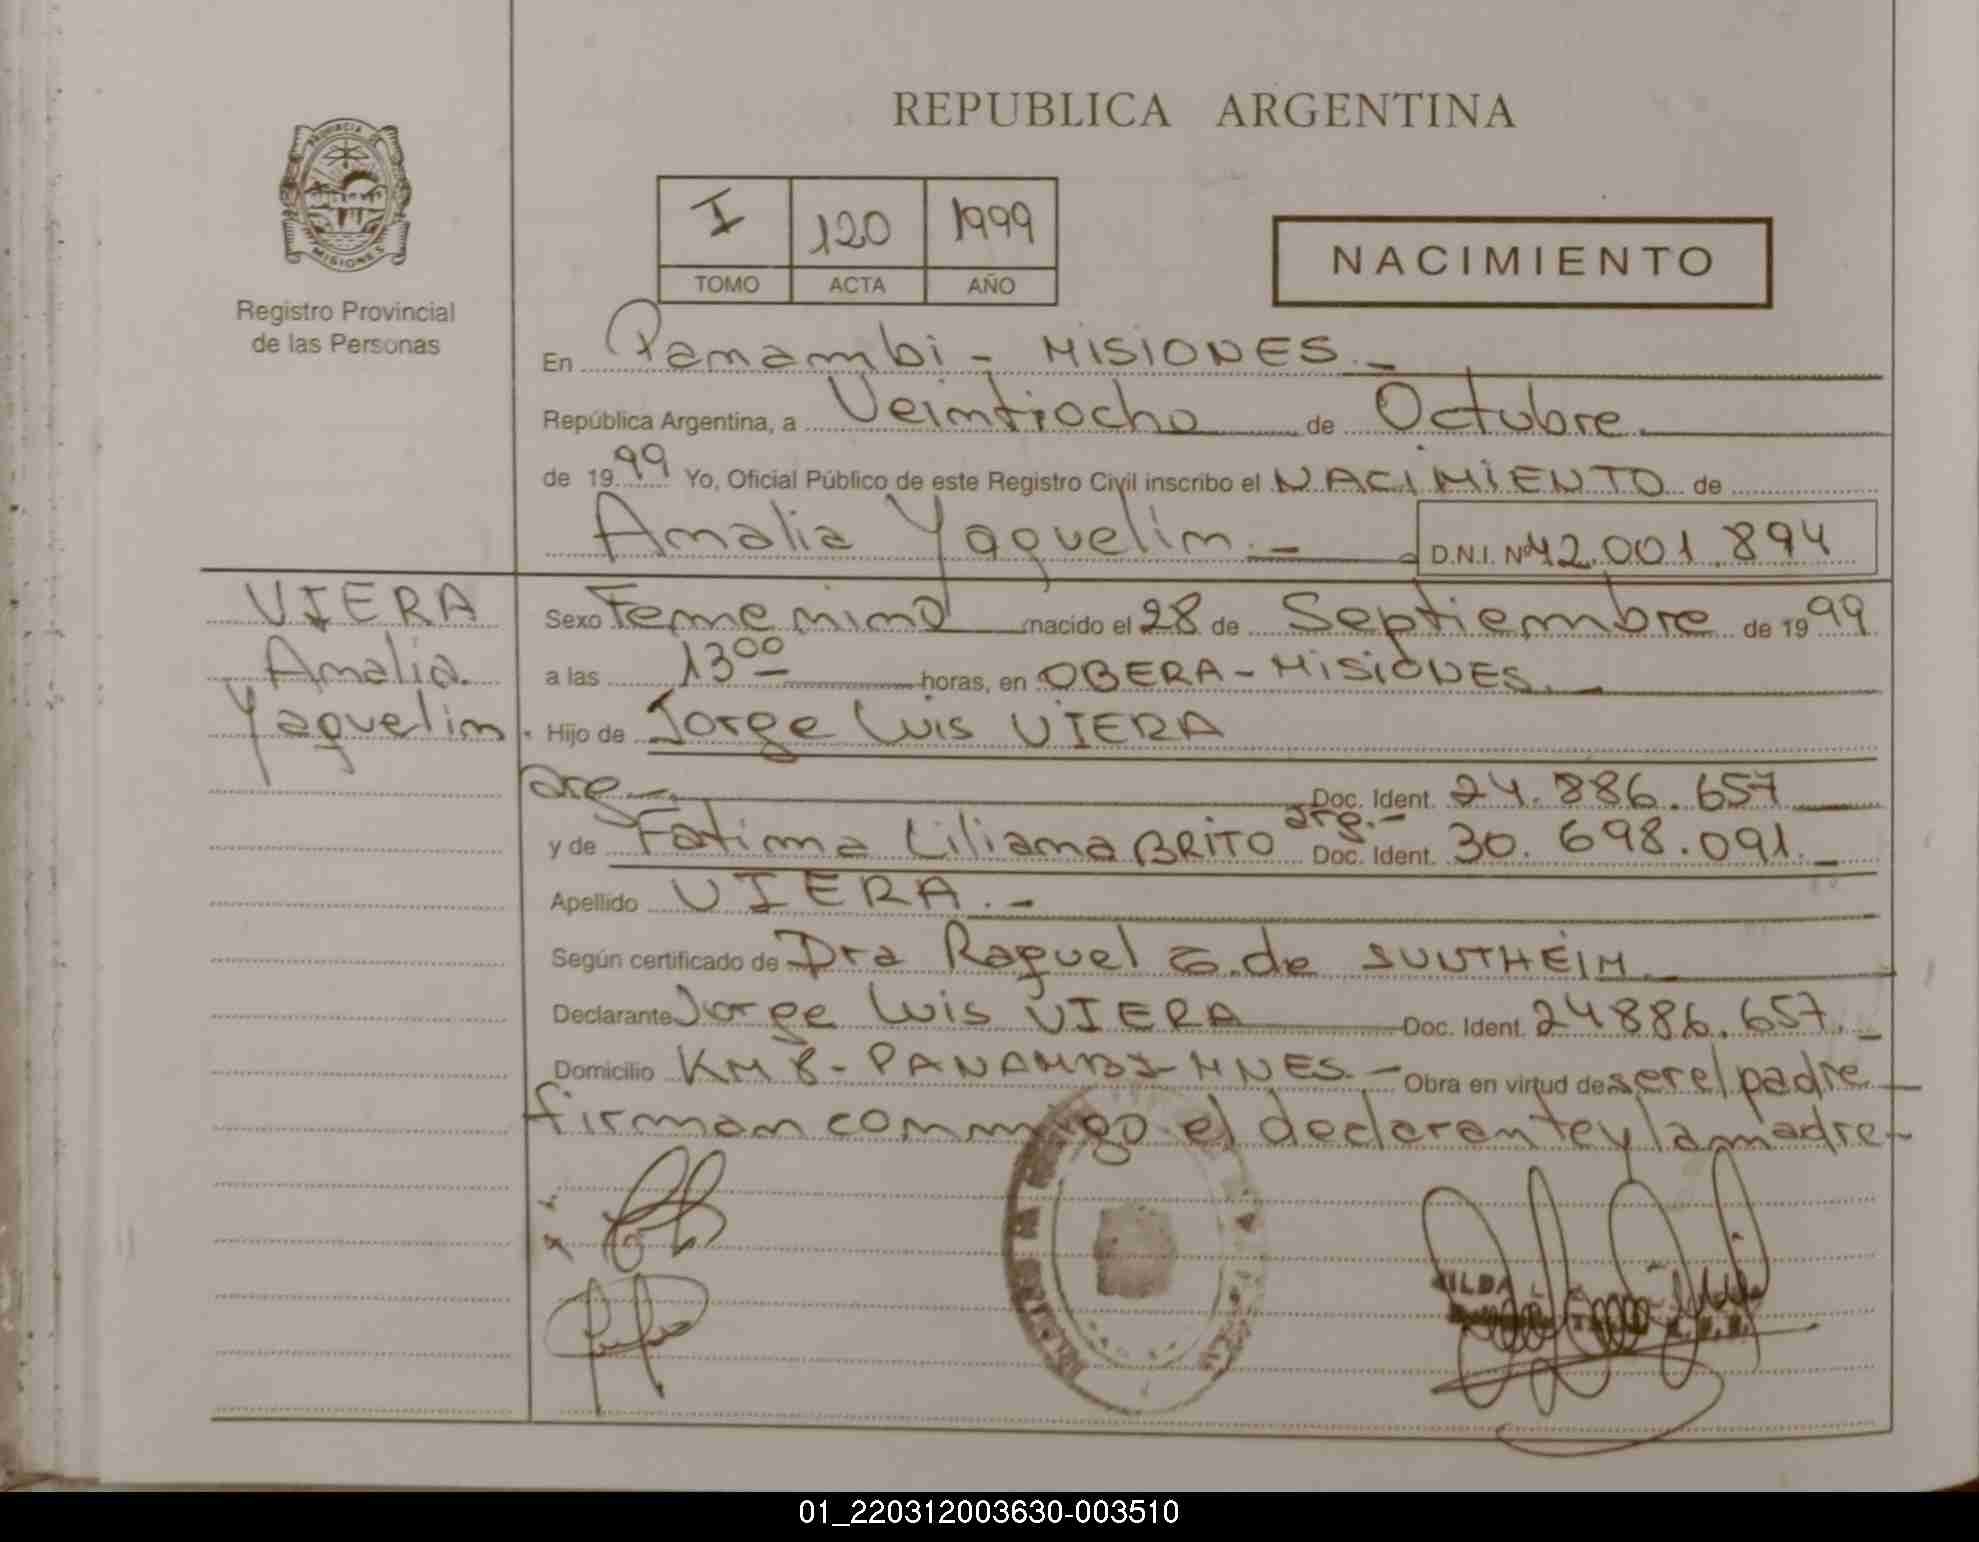 REPUBLICA ARGENTINA
PROVINCIA DE MISIONES
Registro Provincial
de las Personas
I 120 1999
TOMO ACTA AÑO
NACIMIENTO
En Panambi - MISIONES.-
República Argentina, a Veintiocho de Octubre.
de 1999 Yo, Oficial Público de este Registro Civil inscribo el NACIMIENTO de
Amalia Yaquelin.- D.N.I. Nº 42.001.894
VIERA
Amalia
Yaquelin.
Sexo Femenino nacido el 28 de Septiembre de 1999
a las 13⁰⁰ horas, en OBERA - MISIONES.-
Hijo de Jorge Luis VIERA
arg.- Doc. Ident. 24.886.657
y de Fatima Liliana BRITO arg.- Doc. Ident. 30.698.091.-
Apellido VIERA.-
Según certificado de Dra Raquel G. de
Declarante Jorge Luis VIERA Doc. Ident. 24886.657.-
Domicilio KM 8 - PANAMBI - MNES.- Obra en virtud de ser el padre
firman conmigo el declarante y la madre-
01_220312003630-003510